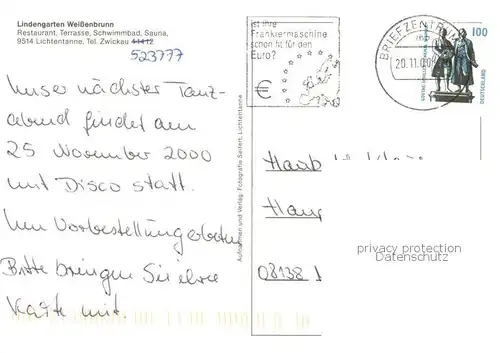 Lindengarten Weißenbrunn
Restaurant, Terrasse, Schwimmbad, Sauna,
9514 Lichtentanne, Tel. Zwickau 41412
523777
Unser nächster Tanz-
abend findet am
25 November 2000
mit Disco statt.
Um Vorbestellung gebeten
Bitte bringen Sie ihre
Karte mit.
Aufnahmen und Verlag: Fotografie Seifert, Lichtentanne
Ist Ihre
Frankiermaschine
schon fit für den
Euro?
€
BRIEFZENTRUM
20.11.00
100
DEUTSCHLAND
08138
privacy protection
Datenschutz